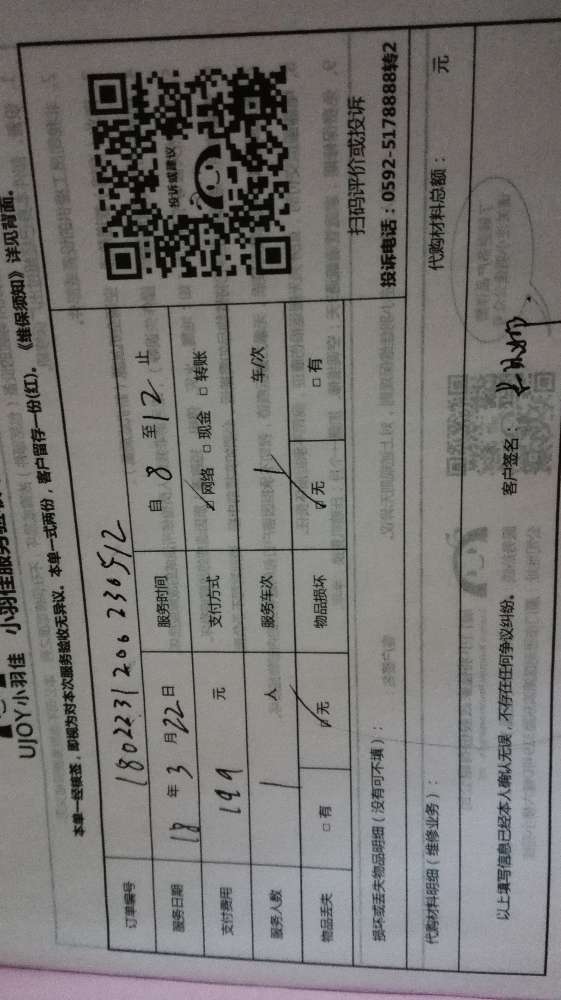 UJOY小羽佳 小羽佳服务验收
本单一经核签，即视为对本次服务验收无异议。本单一式两份，客户留存一份(红)。《维保须知》详见背面。
订单编号 180223120623051２
服务日期 18 年 3 月 22 日 服务时间 自 8 至 12 止
支付费用 199 元 支付方式 ☑ 网络 □ 现金 □ 转账
服务人数 1 人 服务车次 1 车/次
物品丢失 □ 有 ☑ 无 物品损坏 ☑ 无 □ 有
投诉或建议
扫码评价或投诉
投诉电话：0592-5178888转2
损坏或丢失物品明细（没有可不填）：
代购材料明细（维修业务）： 代购材料总额： 元
以上填写信息已经本人确认无误，不存在任何争议纠纷。 客户签名：